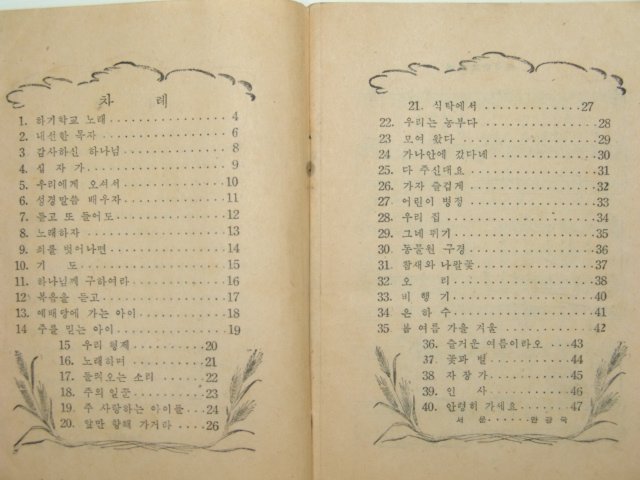 차 례
1. 하기학교 노래 4
2. 내선한 목자 6
3 감사하신 하나님 8
4. 십 자 가 9
5. 우리에게 오서서 10
6. 성경말씀 배우자 11
7. 듣고 또 들어도 12
8. 노래하자 13
9. 죄를 벗어나면 14
10. 기 도 15
11. 하나님께 구하여라 16
12 복음을 듣고 17
13. 예배당에 가는 아이 18
14 주를 믿는 아이 19
15 우리 형제 20
16. 노래하며 21
17. 들려오는 소리 22
18. 주의 일꾼 23
19. 주 사랑하는 아이들 24
20. 앞만 향해 가거라 26
21. 식탁에서 27
22. 우리는 농부다 28
23 모여 왔다 29
24 가나안에 갔다네 30
25. 다 주신대요 31
26. 가자 즐겁게 32
27. 어린이 병정 33
28. 우리 집 34
29. 그네 뛰기 35
30. 동물원 구경 36
31. 참새와 나팔꽃 37
32. 오 리 38
33. 비 행 기 40
34 은 하 수 41
35 봄 여름 가을 겨울 42
36. 즐거운 여름이라오 43
37. 꽃과 벌 44
38 자 장 가 45
39. 인 사 46
40. 안령히 가세요 47